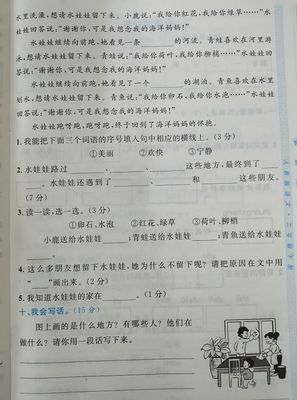 水里洗澡,想请水娃娃留下来。小鹿说:“我给你红花,我给你绿草……”水
娃娃回答说:“谢谢你,可是我想念我的海洋妈妈!”
水娃娃继续向前跑,她看见一条______的河流。青蛙喜欢在河里游
泳,想请水娃娃留下来。青蛙说:“我给你荷叶,我给你柳梢……”水娃娃回
答说:“谢谢你,可是我想念我的海洋妈妈!”
水娃娃继续向前跑,她看见了一个______的湖泊。青鱼喜欢在水里
水,想请水娃娃留下来。青鱼说:“我给你卵石,我给你水泡……”水娃娃
回答说:“谢谢你,可是我想念我的海洋妈妈!”
水娃娃跑呀跑,跑呀跑,终于回到了海洋妈妈的怀抱。
1.我能把下面三个词语的序号填入句中相应的横线上。(3分)
①美丽 ②欢快 ③宁静
2.水娃娃路过______、______、______这些地方,最终到了___
___。水娃娃还遇到了______、______和______这些朋友。
(7分)
3.读一读,选一选。(3分)
①卵石、水泡 ②红花、绿草 ③荷叶、柳梢
小鹿送给水娃娃____;青蛙送给水娃娃____;青鱼送给水娃娃
____。
4.这么多朋友想留下水娃娃,她为什么不留下呢?请把原因在文中用
“____”画出来。(2分)
5.我知道水娃娃的家在______。(1分)
十、我会写话。(15分)
图上画的是什么地方?有哪些人?他们在
做什么?请你用一段话写下来。